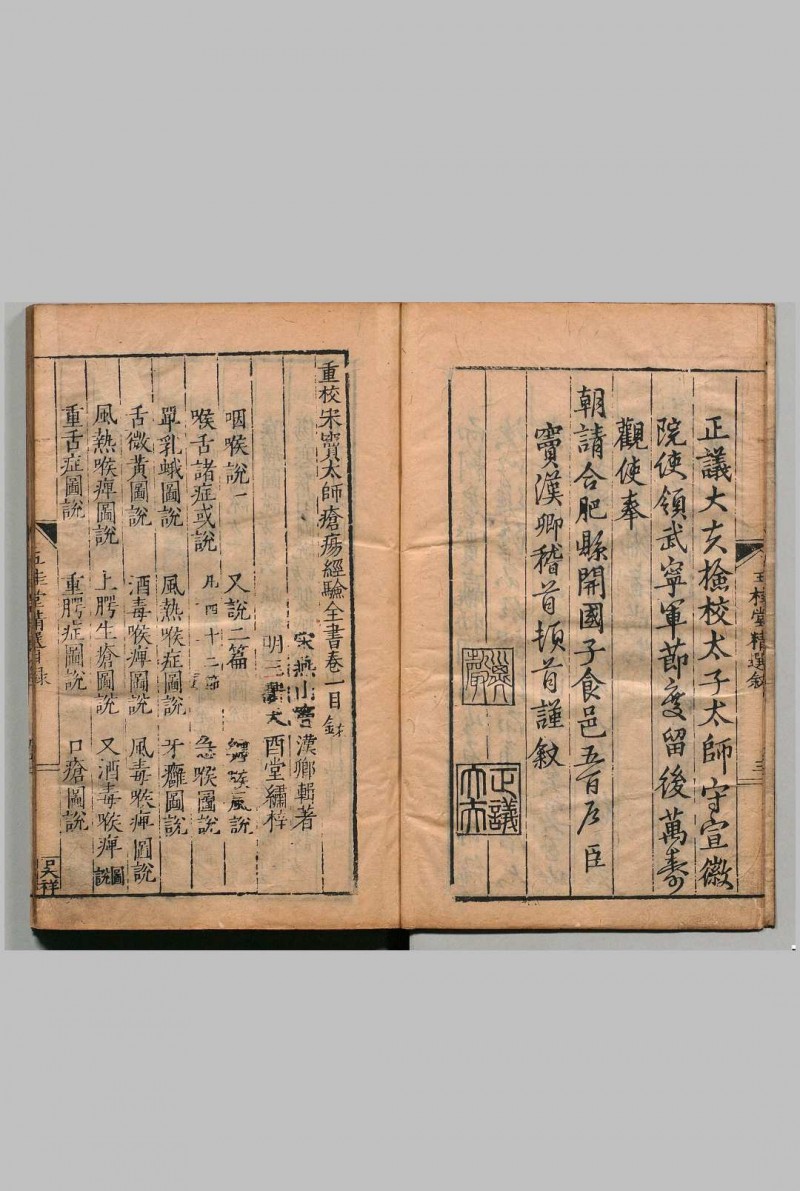 正議大夫檢校太子太師守宣徽
院使領武寧軍節度留後萬壽
觀使奉
朝請合肥縣開國子食邑五百戶臣
竇漢卿稽首頓首謹敘
正議
大夫
五桂堂精選敘
三
重校宋竇太師瘡瘍經驗全書卷一目錄
宋燕山竇漢卿輯著
明三衢大酉堂繡梓
咽喉說一 又說二篇 喉風說
喉舌諸症或說 凡四十二 急喉圖說
單乳蛾圖說 風熱喉症圖說 牙癰圖說
舌微黃圖說 酒毒喉痺圖說 風毒喉痺圖說
風熱喉痺圖說 上腭生瘡圖說 又酒毒喉痺圖說
重舌症圖說 重腭症圖說 口瘡圖說
目錄
吳祥